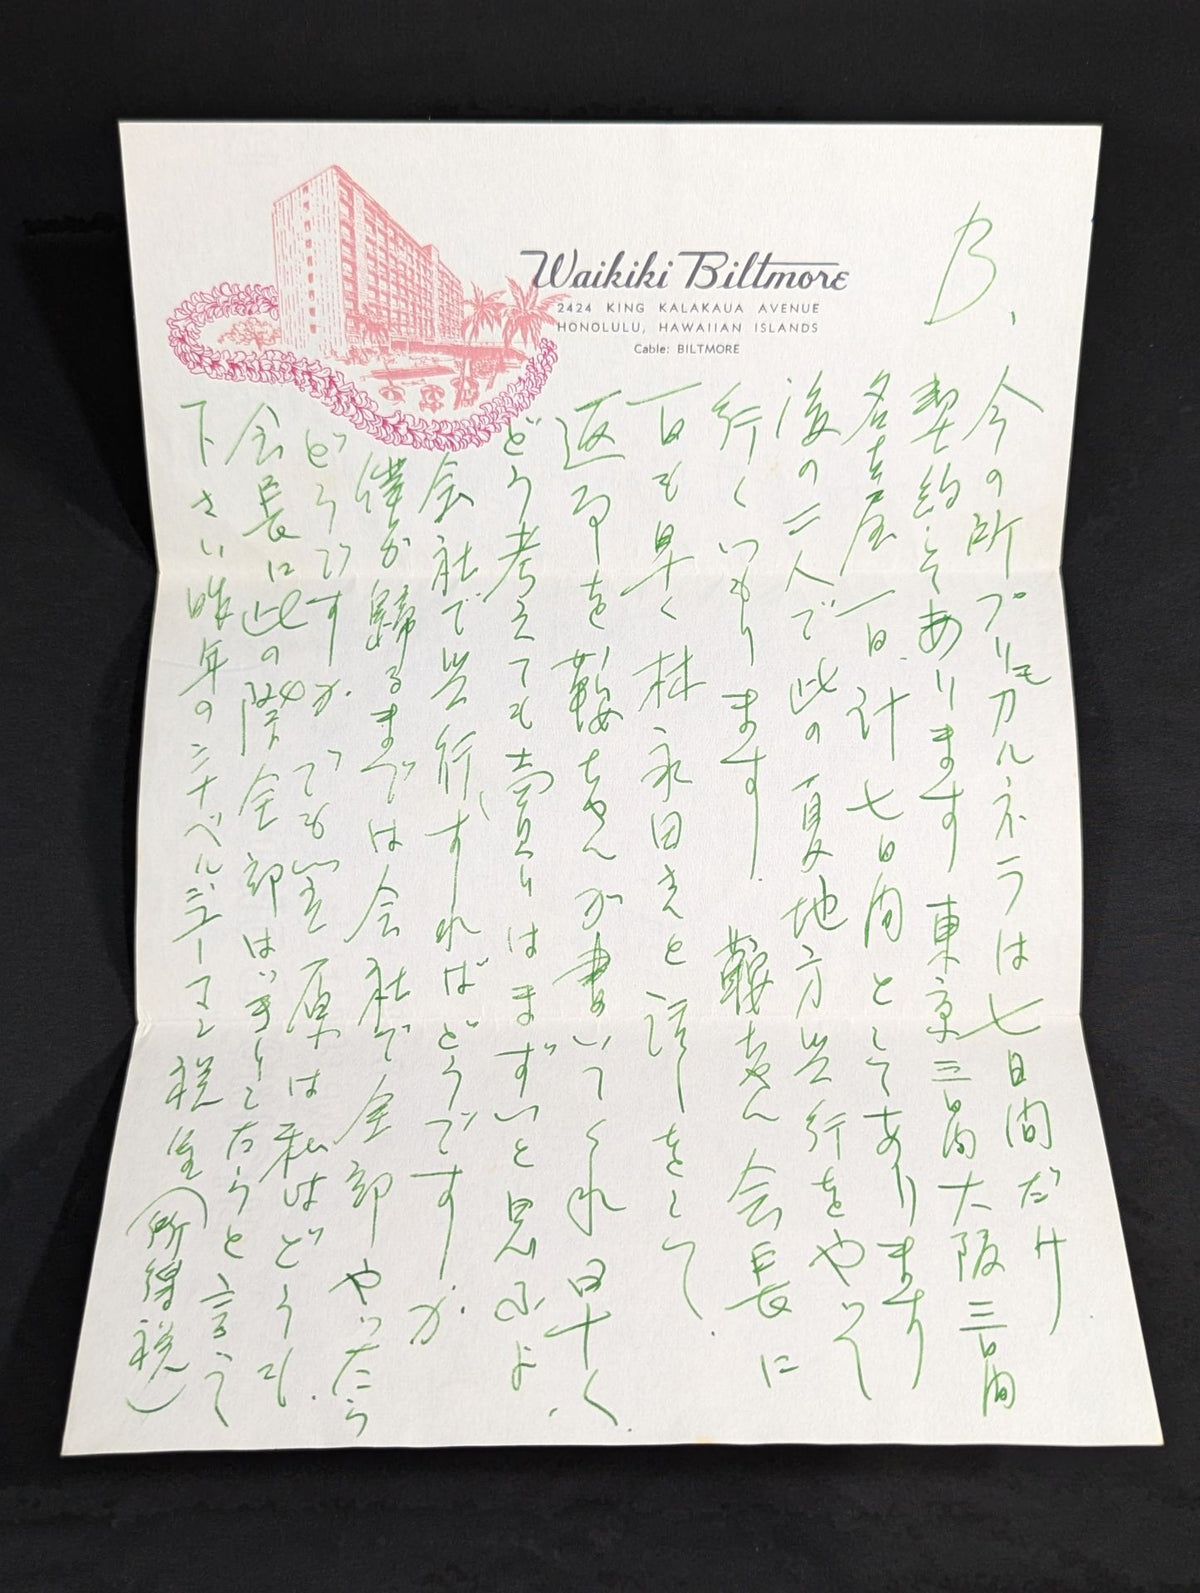 Waikiki Biltmore
2424 KING KALAKAUA AVENUE
HONOLULU, HAWAIIAN ISLANDS
Cable: BILTMORE
B、
今の所プリモカルネラは七日間だけ
契約してあります東京三日間大阪三日間
名古屋一日、計七日間としてあります
後の二人で此の夏地方興行をやって
行くつもります。鞍ちゃん会長に
一日も早く林永田さんと話しをして、
返事を鞍ちゃんが書いてくれ早く。
どう考えても売りはまずいと思ふよ、
会社で興行すればどうですか、
僕が帰るまでは会社で全部やったら
どうですか、でも笠原は私はどうも、
会長に此の際全部はっきりしたらうと言って
下さい昨年のシナベルジューマン税金(所得税)